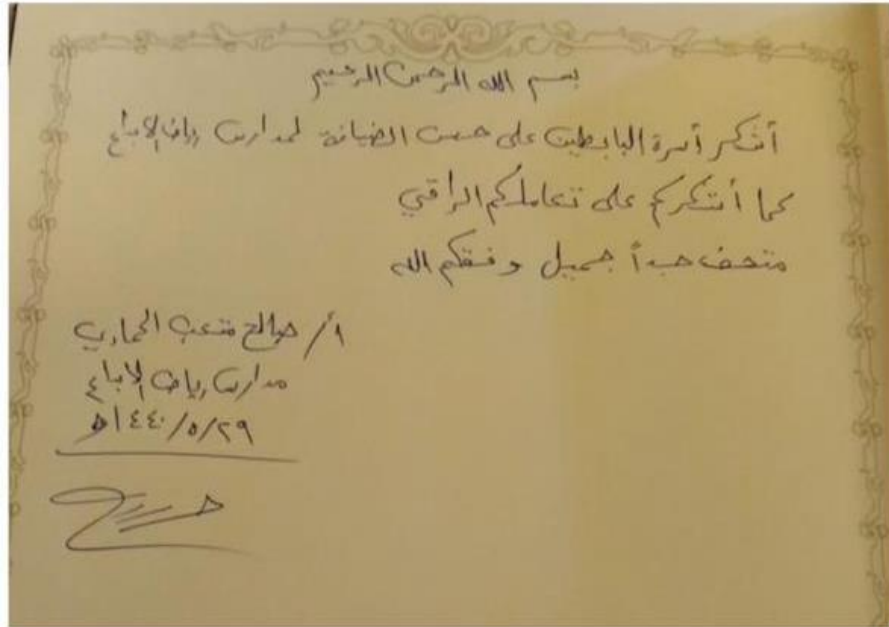 بسم الله الرحمن الرحيم
أشكر أسرة البابطين على حسن الضيافة لمدارس رياض الابداع
كما أشكركم على تعاملكم الراقي
متحف جداً جميل وفقكم الله
أ/ صالح متعب
مدارس رياض الابداع
٢٩/٥/١٤٤٠هـ